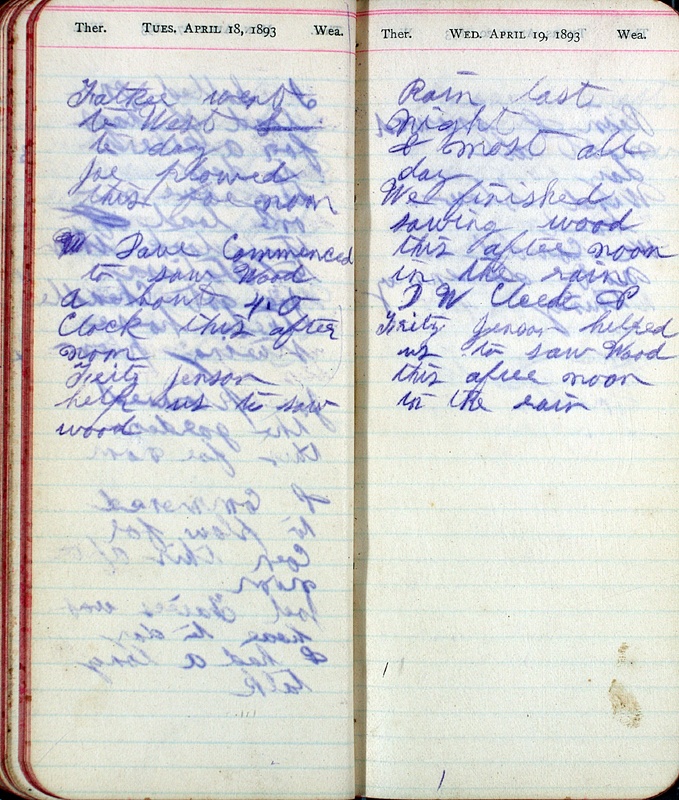 Ther. TUES. APRIL 18, 1893 Wea.
Father went
to West
to day
Joe plowed
this foe noon
W Dave Commenced
to saw Wood
a bout 4.0
Clock this after
noon
Freitz Jenson
helped us to saw
wood
Ther. WED. APRIL 19, 1893 Wea.
Rain last
night
& most all
day
We finished
sawing wood
this after noon
in the rain
D W Cleede P
Freitz Jenson helped
us to saw Wood
this aftee noon
in the rain